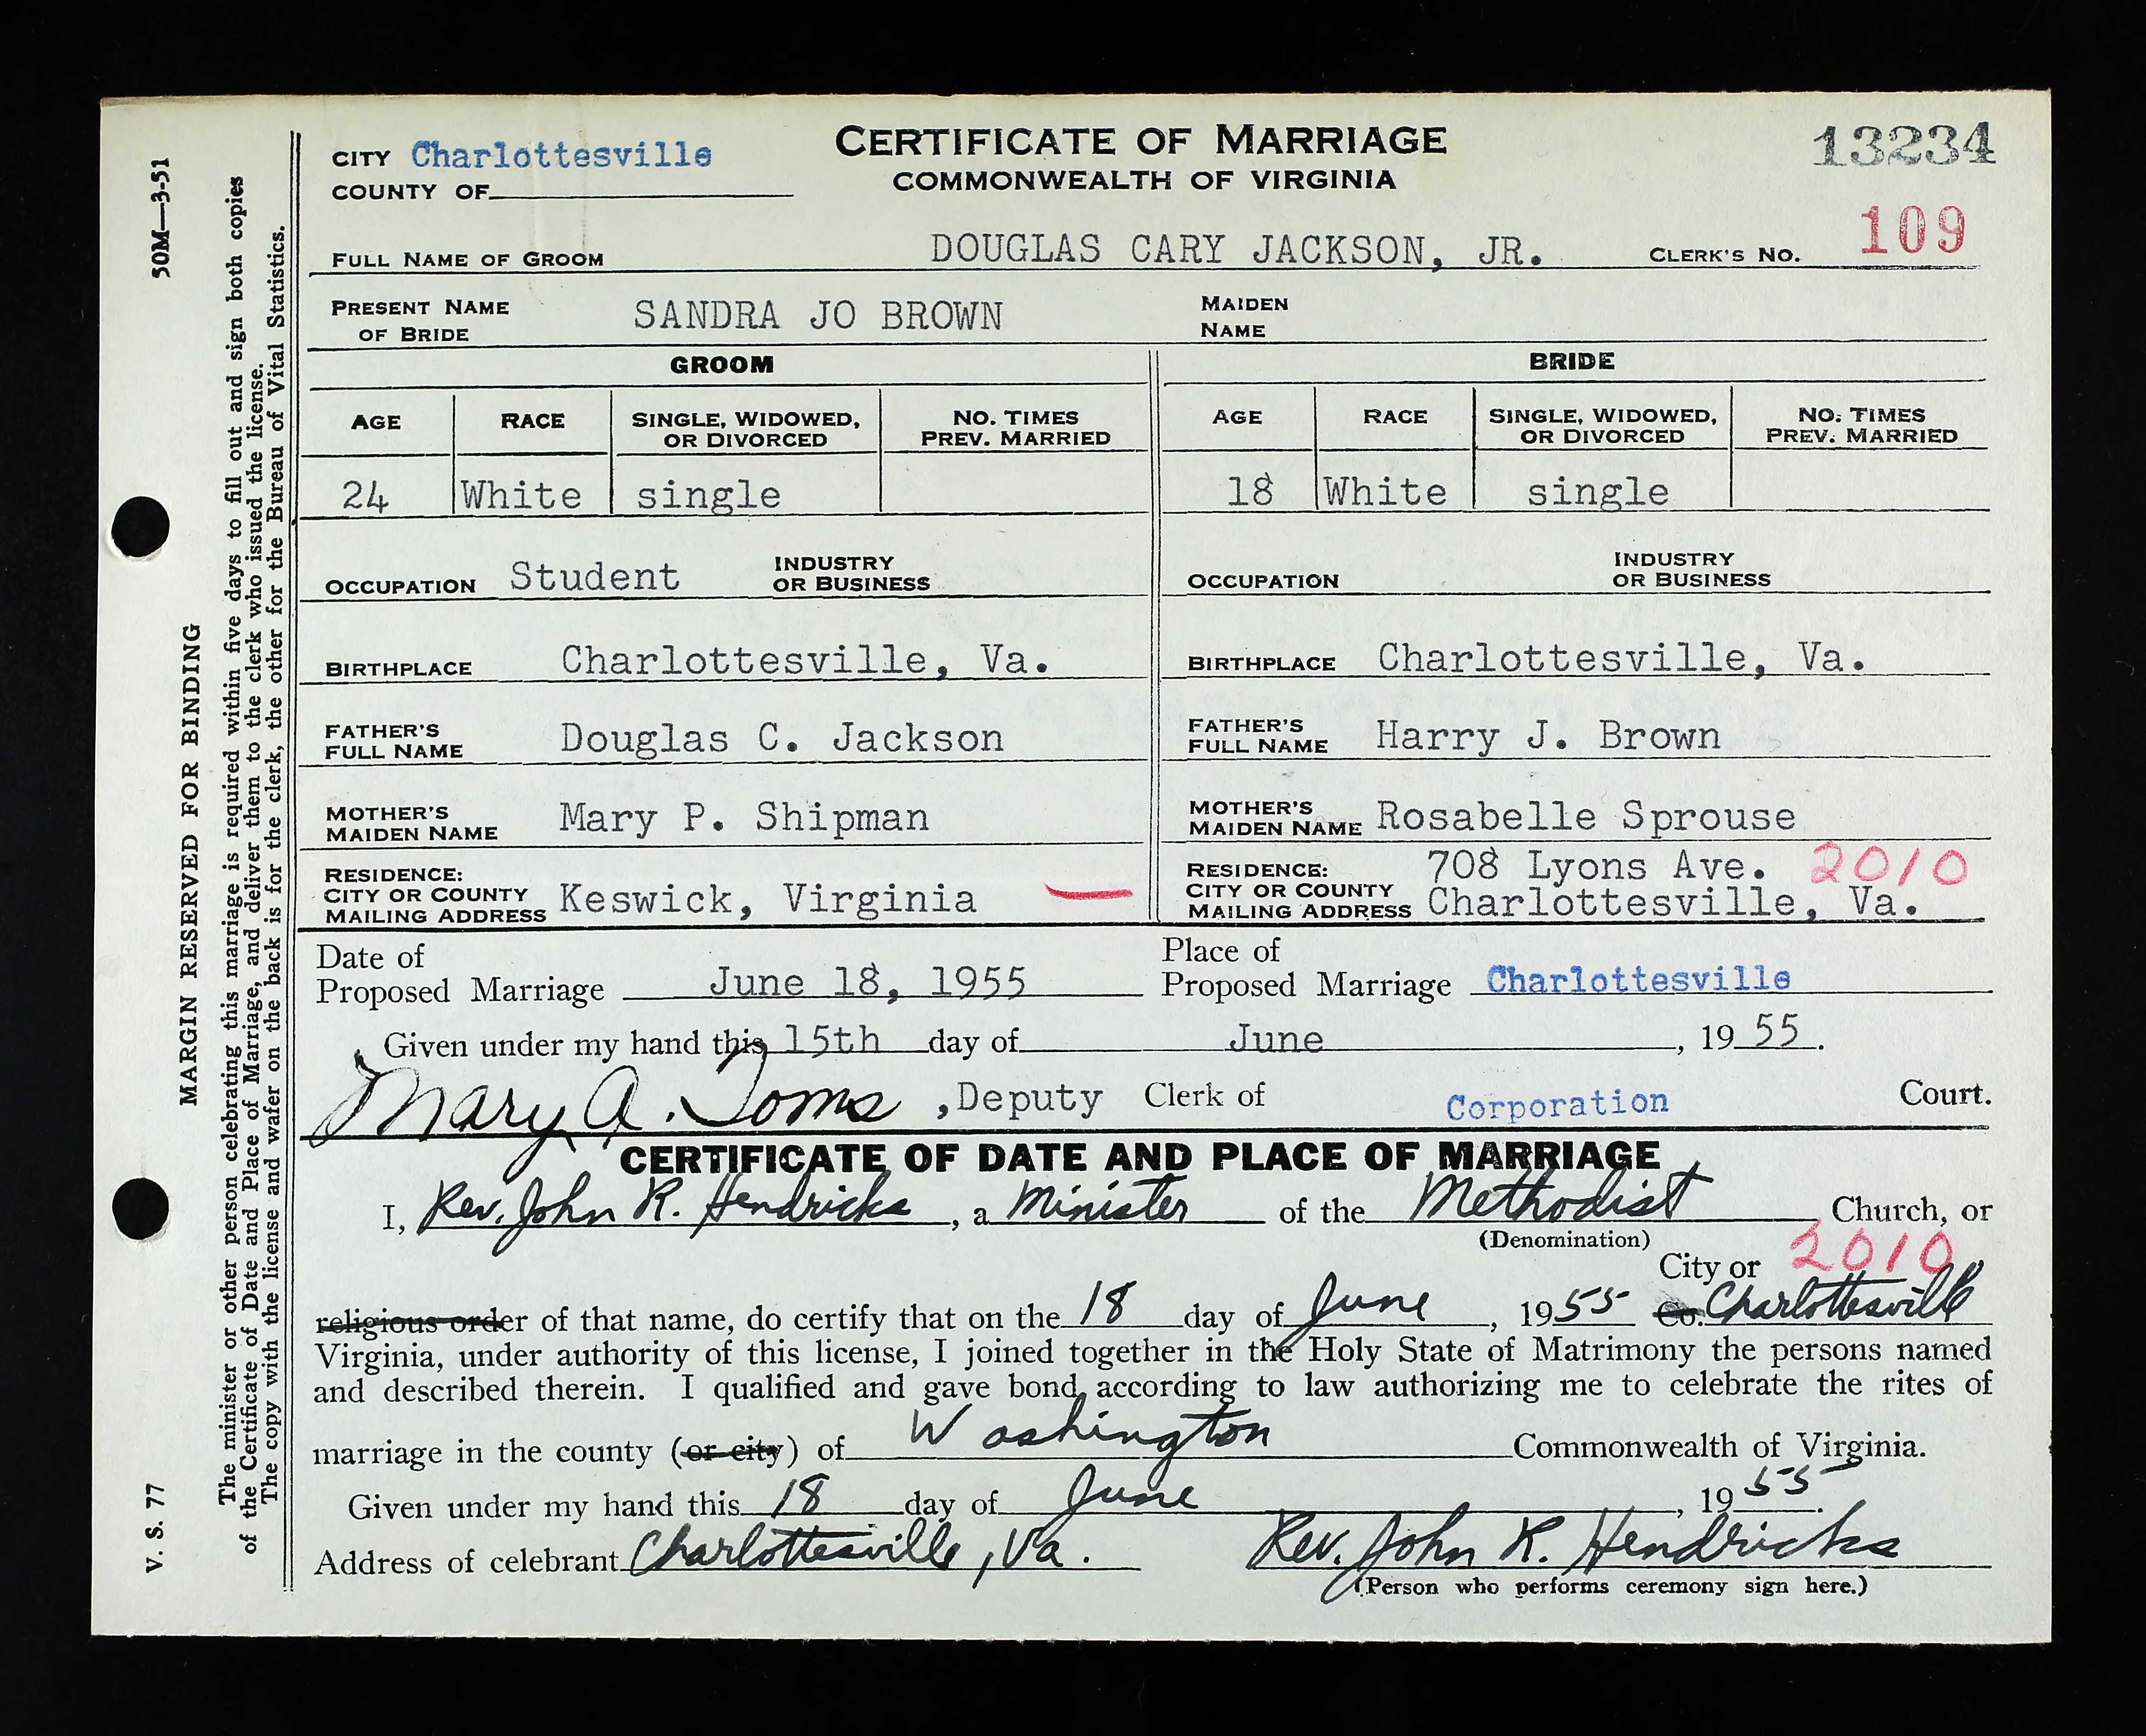 CERTIFICATE OF MARRIAGE
COMMONWEALTH OF VIRGINIA
13234
CITY Charlottesville
COUNTY OF
FULL NAME OF GROOM DOUGLAS CARY JACKSON, JR. CLERK'S NO. 109
PRESENT NAME OF BRIDE SANDRA JO BROWN MAIDEN NAME
GROOM BRIDE
AGE RACE SINGLE, WIDOWED, OR DIVORCED NO. TIMES PREV. MARRIED AGE RACE SINGLE, WIDOWED, OR DIVORCED NO. TIMES PREV. MARRIED
24 White single 18 White single
OCCUPATION Student INDUSTRY OR BUSINESS OCCUPATION INDUSTRY OR BUSINESS
BIRTHPLACE Charlottesville, Va. BIRTHPLACE Charlottesville, Va.
FATHER'S FULL NAME Douglas C. Jackson FATHER'S FULL NAME Harry J. Brown
MOTHER'S MAIDEN NAME Mary P. Shipman MOTHER'S MAIDEN NAME Rosabelle Sprouse
RESIDENCE: CITY OR COUNTY MAILING ADDRESS Keswick, Virginia RESIDENCE: CITY OR COUNTY MAILING ADDRESS 708 Lyons Ave. 2010
Charlottesville, Va.
Date of Proposed Marriage June 18, 1955 Place of Proposed Marriage Charlottesville
Given under my hand this 15th day of June, 1955.
Mary A. Toms, Deputy Clerk of Corporation Court.
CERTIFICATE OF DATE AND PLACE OF MARRIAGE
I, Rev. John R. Hendricks, a Minister of the Methodist Church, or
(Denomination)
City or 2010
religious order of that name, do certify that on the 18 day of June, 1955 Co. Charlottesville
Virginia, under authority of this license, I joined together in the Holy State of Matrimony the persons named
and described therein. I qualified and gave bond according to law authorizing me to celebrate the rites of
marriage in the county (or city) of Washington Commonwealth of Virginia.
Given under my hand this 18 day of June, 1955.
Address of celebrant Charlottesville, Va. Rev. John R. Hendricks
(Person who performs ceremony sign here.)
V. S. 77 MARGIN RESERVED FOR BINDING 50M—3-51
The minister or other person celebrating this marriage is required within five days to fill out and sign both copies
of the Certificate of Date and Place of Marriage, and deliver them to the clerk who issued the license.
The copy with the license and wafer on the back is for the clerk, the other for the Bureau of Vital Statistics.